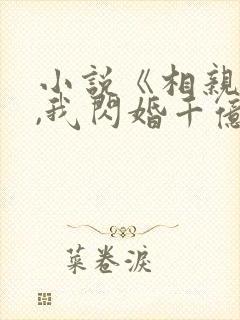 小説《相親
,我閃婚千億
菜卷淚